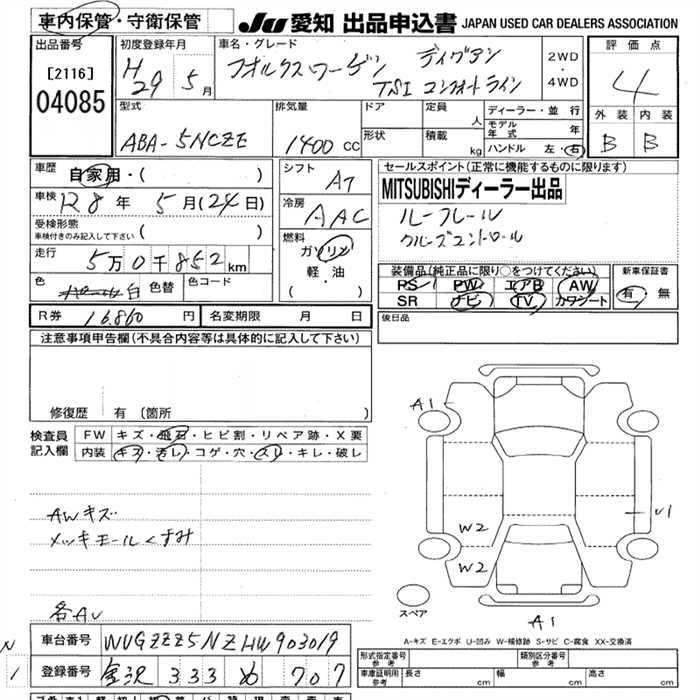 車内保管・守衛保管
JU 愛知 出品申込書 JAPAN USED CAR DEALERS ASSOCIATION
出品番号
[2116]
04085
初度登録年月
H29 5月
車名・グレード
フオルクスワーゲン ティグアン
TSI コンフォートライン
2WD
・
4WD
評価点
4
外装 内装
B B
型式
ABA-5NCZE
排気量
1400 cc
ドア
形状
定員 人
積載 kg
ディーラー・並行
モデル年式 年
ハンドル 左・右
車歴
自家用・( )
車検
R8年 5月(24日)
受検形態
車検付きのみ記入して下さい ( )
走行
5万0千852km
色 パール 白 色替 色コード
シフト
AT
冷房
AAC
燃料
ガソリン
軽・油
( ・ )
セールスポイント(正常に機能するものに限ります)
MITSUBISHIディーラー出品
ルーフレール
クルーズコントロール
装備品(純正品に限り○をつけてください)
PS PW エアB AW
SR ナビ TV カワシート
新車保証書
有・無
R券 16,860円 名変期限 月 日
後日品
注意事項申告欄(不具合内容等は具体的に記入して下さい)
修復歴 有(箇所 )
検査員記入欄
FW キズ・飛石・ヒビ割・リペア跡・X要
内装 キズ・汚レ・コゲ・穴・スリ・キレ・破レ
AWキズ
メッキモールくすみ
各AU
A1
U1
W2
W2
スペア
A1
A-キズ E-エクボ U-凹み W-補修跡 S-サビ C-腐食 XX-交換済
車台番号 WVGZZZ5NZHW903019
登録番号 金沢 333 め 707
形式指定番号 参考
類別区分番号 参考
車庫証明用 参考 長さ cm 幅 cm 高さ cm